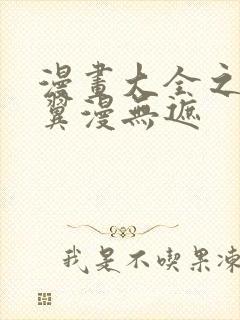 漫畫大全之
翼漫無遮
我是不喫果凍